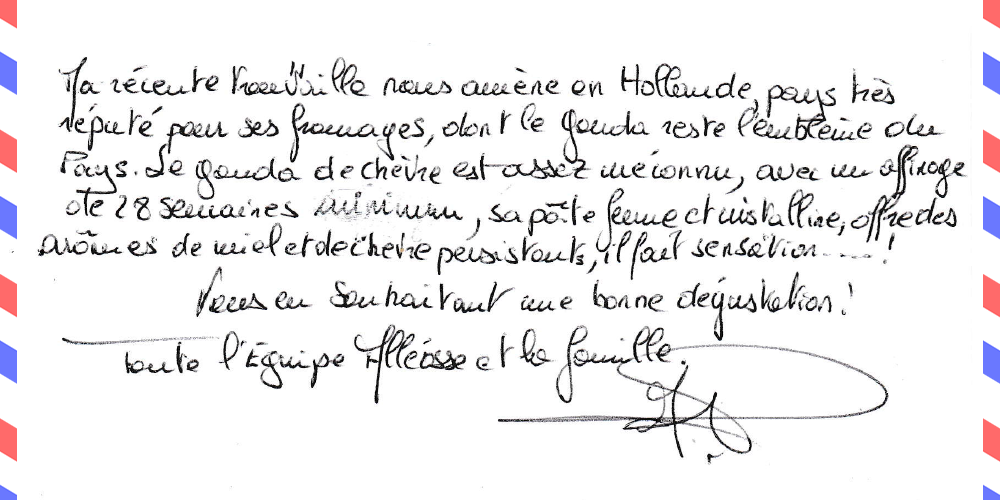 Ma récente trouvaille nous amène en Hollande, pays très
réputé pour ses fromages, dont le gouda reste l'emblème du
Pays. Le gouda de chèvre est assez méconnu, avec un affinage
de 28 semaines minimum, sa pâte ferme et cristalline, offre des
arômes de miel et de chèvre persistants, il fait sensation.....!
Vous en souhaitant une bonne dégustation!
toute l'Équipe Alléosse et la famille.